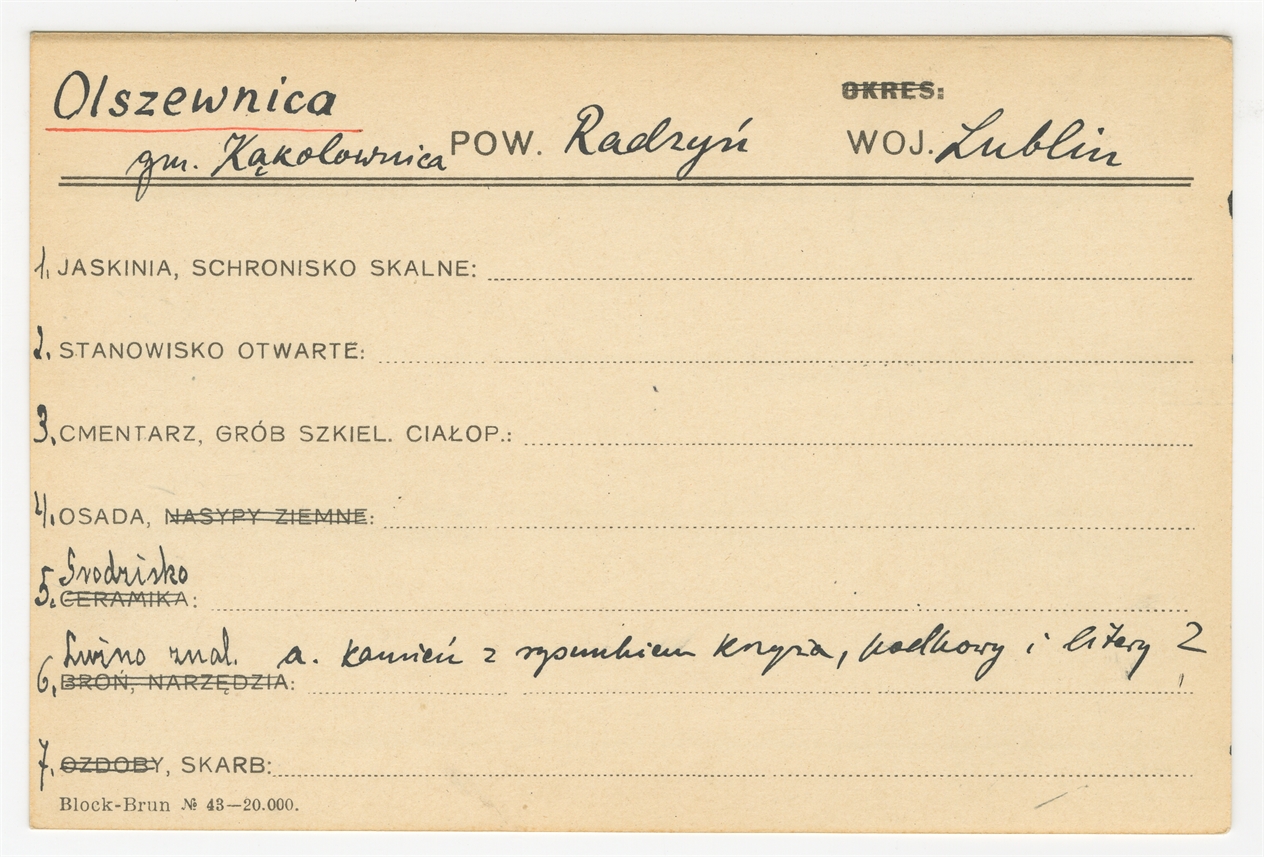 Olszewnica
OKRES:
gm. Kąkolownica POW. Radzyń WOJ. Lublin
1. JASKINIA, SCHRONISKO SKALNE:
2. STANOWISKO OTWARTE:
3. CMENTARZ, GRÓB SZKIEL. CIAŁOP.:
4. OSADA, NASYPY ZIEMNE:
Grodzisko
5. CERAMIKA:
Luźno znal. a. kamień z rysunkiem krzyża, podkowy i litery Z
6. BROŃ, NARZĘDZIA:
7. OZDOBY, SKARB:
Block-Brun № 43—20.000.